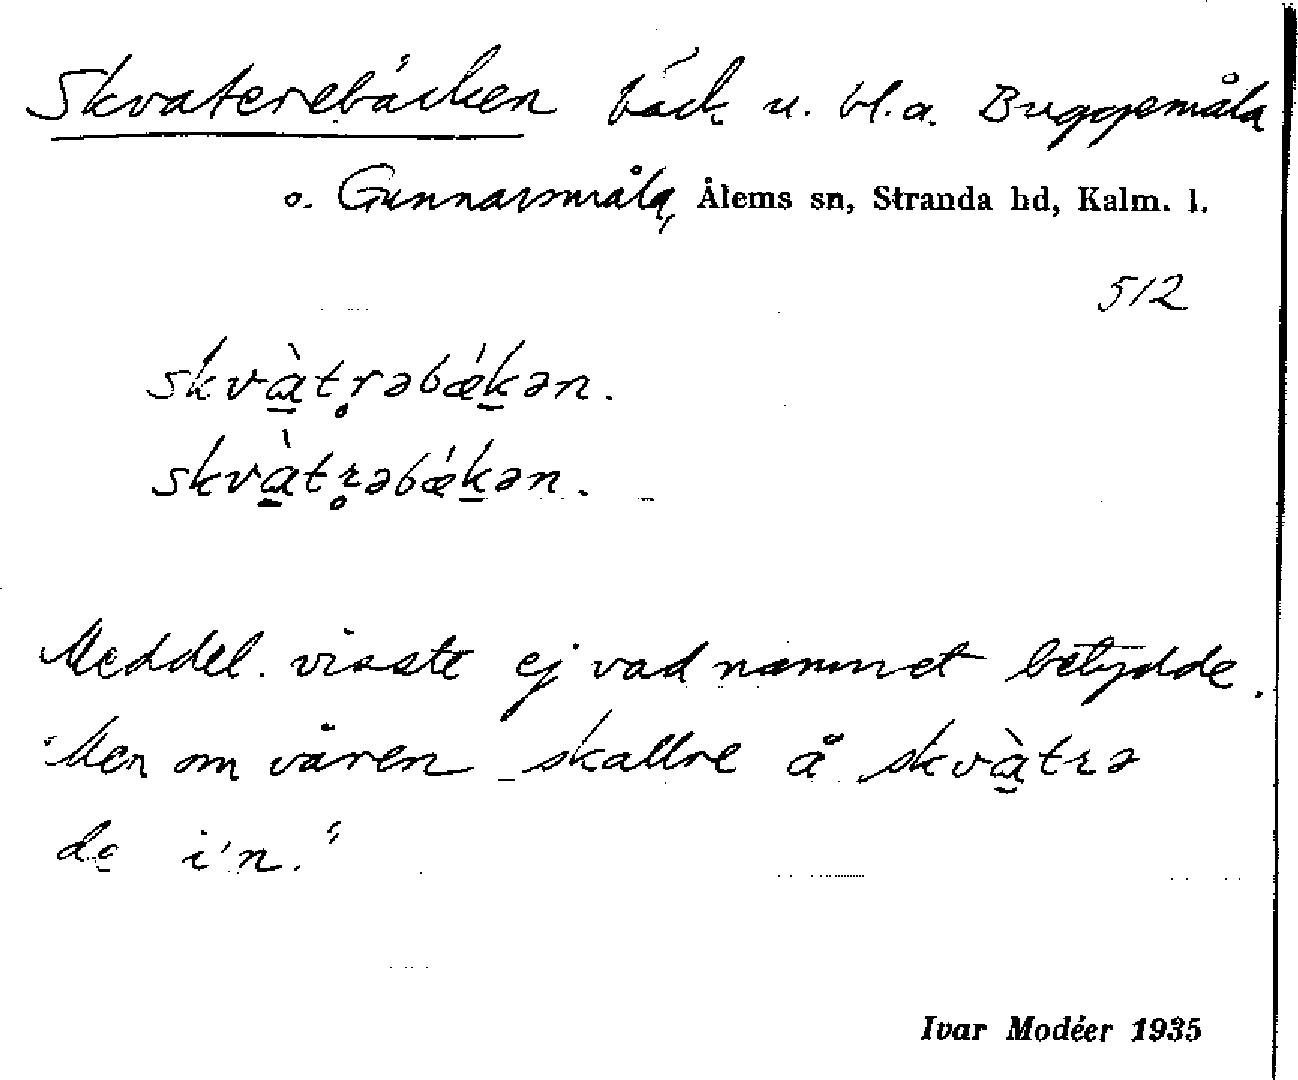 Skvaterebäcken bäck u. bl.a. Buggemåla
o. Gunnarsmåla, Ålems sn, Stranda hd, Kalm. l.
512
skvà̱tr̥əbǽḵən.
skvà̱tɾ̥əbǽḵən.
Meddel. visste ej vad namnet betydde.
"Men om våren skallre å skvà̱trə
de i'n."
Ivar Modéer 1935